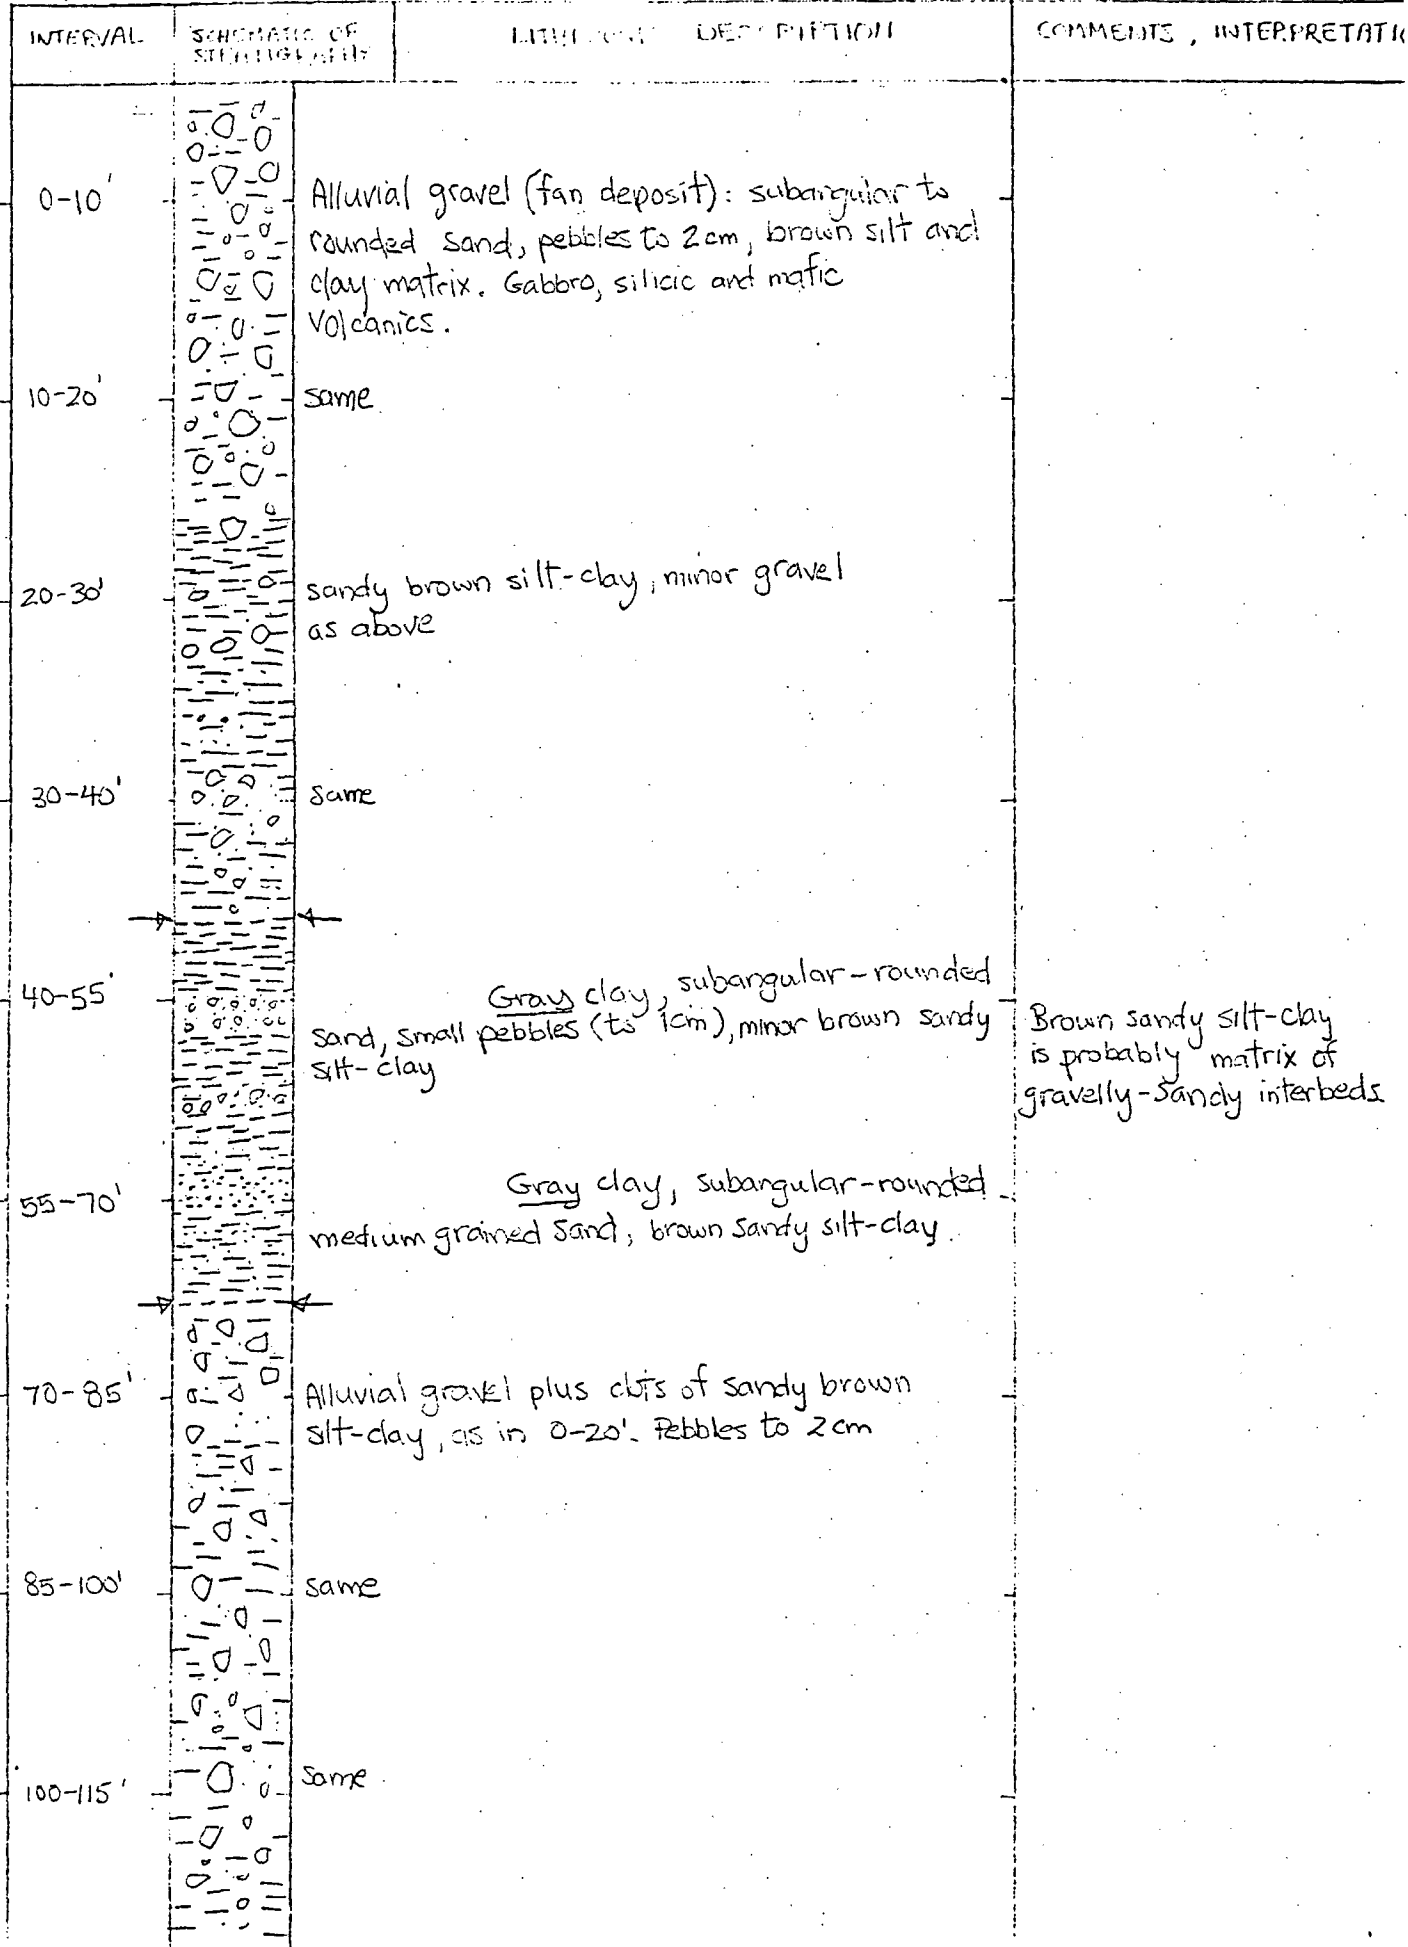 INTERVAL
SCHEMATIC OF
STRATIGRAPHY
DESCRIPTION
COMMENTS, INTERPRETATIO
0-10'
Alluvial gravel (fan deposit): subangular to
rounded sand, pebbles to 2cm, brown silt and
clay matrix. Gabbro, silicic and mafic
volcanics.
10-20'
same
20-30'
sandy brown silt-clay, minor gravel
as above
30-40'
same
40-55'
Gray clay, subangular-rounded
sand, small pebbles (to 1cm), minor brown sandy
silt-clay
Brown sandy silt-clay
is probably matrix of
gravelly-sandy interbeds
55-70'
Gray clay, subangular-rounded
medium grained sand, brown sandy silt-clay.
70-85'
Alluvial gravel plus clots of sandy brown
silt-clay, as in 0-20'. Pebbles to 2cm
85-100'
same
100-115'
same